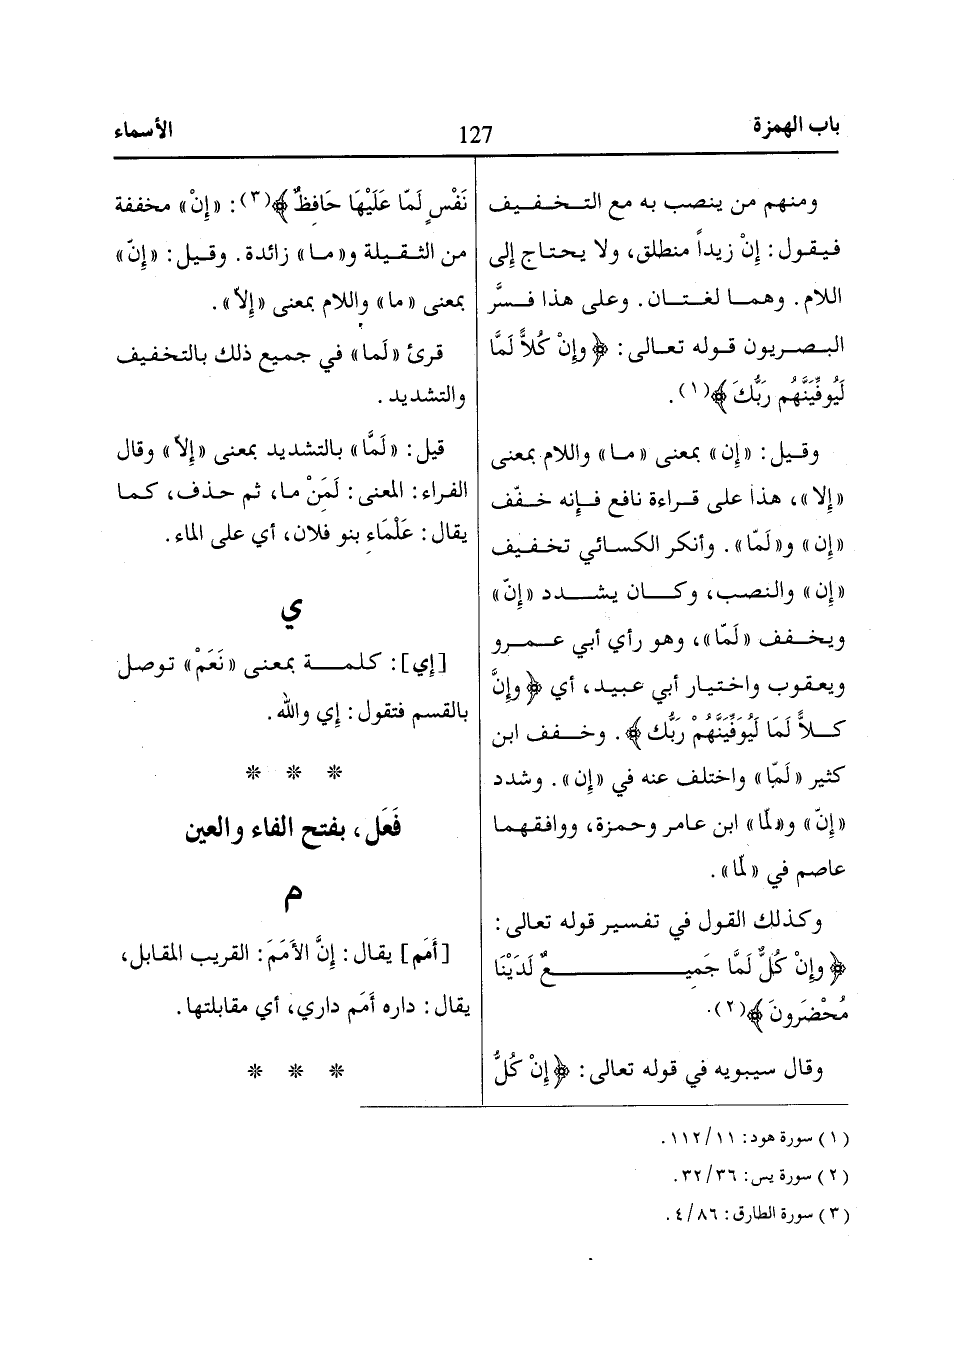 باب الهمزة
127
الأسماء
ومنهم من ينصب به مع التخفيف
فيقول: إنْ زيداً منطلق، ولا يحتاج إلى
اللام. وهما لغتان. وعلى هذا فسَّر
البصريون قوله تعالى: ﴿وإنْ كُلاًّ لَمَّا
لَيُوفِّيَنَّهُم رَبُّكَ﴾(١).
وقيل: «إن» بمعنى «ما» واللام بمعنى
«إلا»، هذا على قراءة نافع فإنه خفّف
«إن» و«لَمّا». وأنكر الكسائي تخفيف
«إن» والنصب، وكان يشدد «إنّ»
ويخفف «لَمّا»، وهو رأي أبي عمرو
ويعقوب واختيار أبي عبيد، أي ﴿وإنَّ
كلاًّ لَمَا لَيُوَفِّيَنَّهُمْ رَبُّك﴾. وخفف ابن
كثير «لَمّا» واختلف عنه في «إن». وشدد
«إنّ» و«لمّا» ابن عامر وحمزة، ووافقهما
عاصم في «لمّا».
وكذلك القول في تفسير قوله تعالى:
﴿وإنْ كُلٌّ لَمَّا جَمِيعٌ لَدَيْنَا
مُحْضَرونَ﴾(٢).
وقال سيبويه في قوله تعالى: ﴿إنْ كُلُّ
نَفْسٍ لَمّا عَلَيْهَا حَافِظٌ﴾(٣): «إنْ» مخففة
من الثقيلة و«ما» زائدة. وقيل: «إنّ»
بمعنى «ما» واللام بمعنى «إلاّ».
قرئ «لَما» في جميع ذلك بالتخفيف
والتشديد.
قيل: «لَمَّا» بالتشديد بمعنى «إلاّ» وقال
الفراء: المعنى: لَمَنْ ما، ثم حذف، كما
يقال: عَلْمَاءِ بنو فلان، أي على الماء.
ي
[إي]: كلمة بمعنى «نَعَمْ» توصل
بالقسم فتقول: إي والله.
* * *
فَعَل، بفتح الفاء والعين
م
[أَمَم] يقال: إنَّ الأَمَمَ: القريب المقابل،
يقال: داره أَمَم داري، أي مقابلتها.
* * *
(١) سورة هود: ١١/ ١١٢.
(٢) سورة يس: ٣٦/ ٣٢.
(٣) سورة الطارق: ٨٦/ ٤.